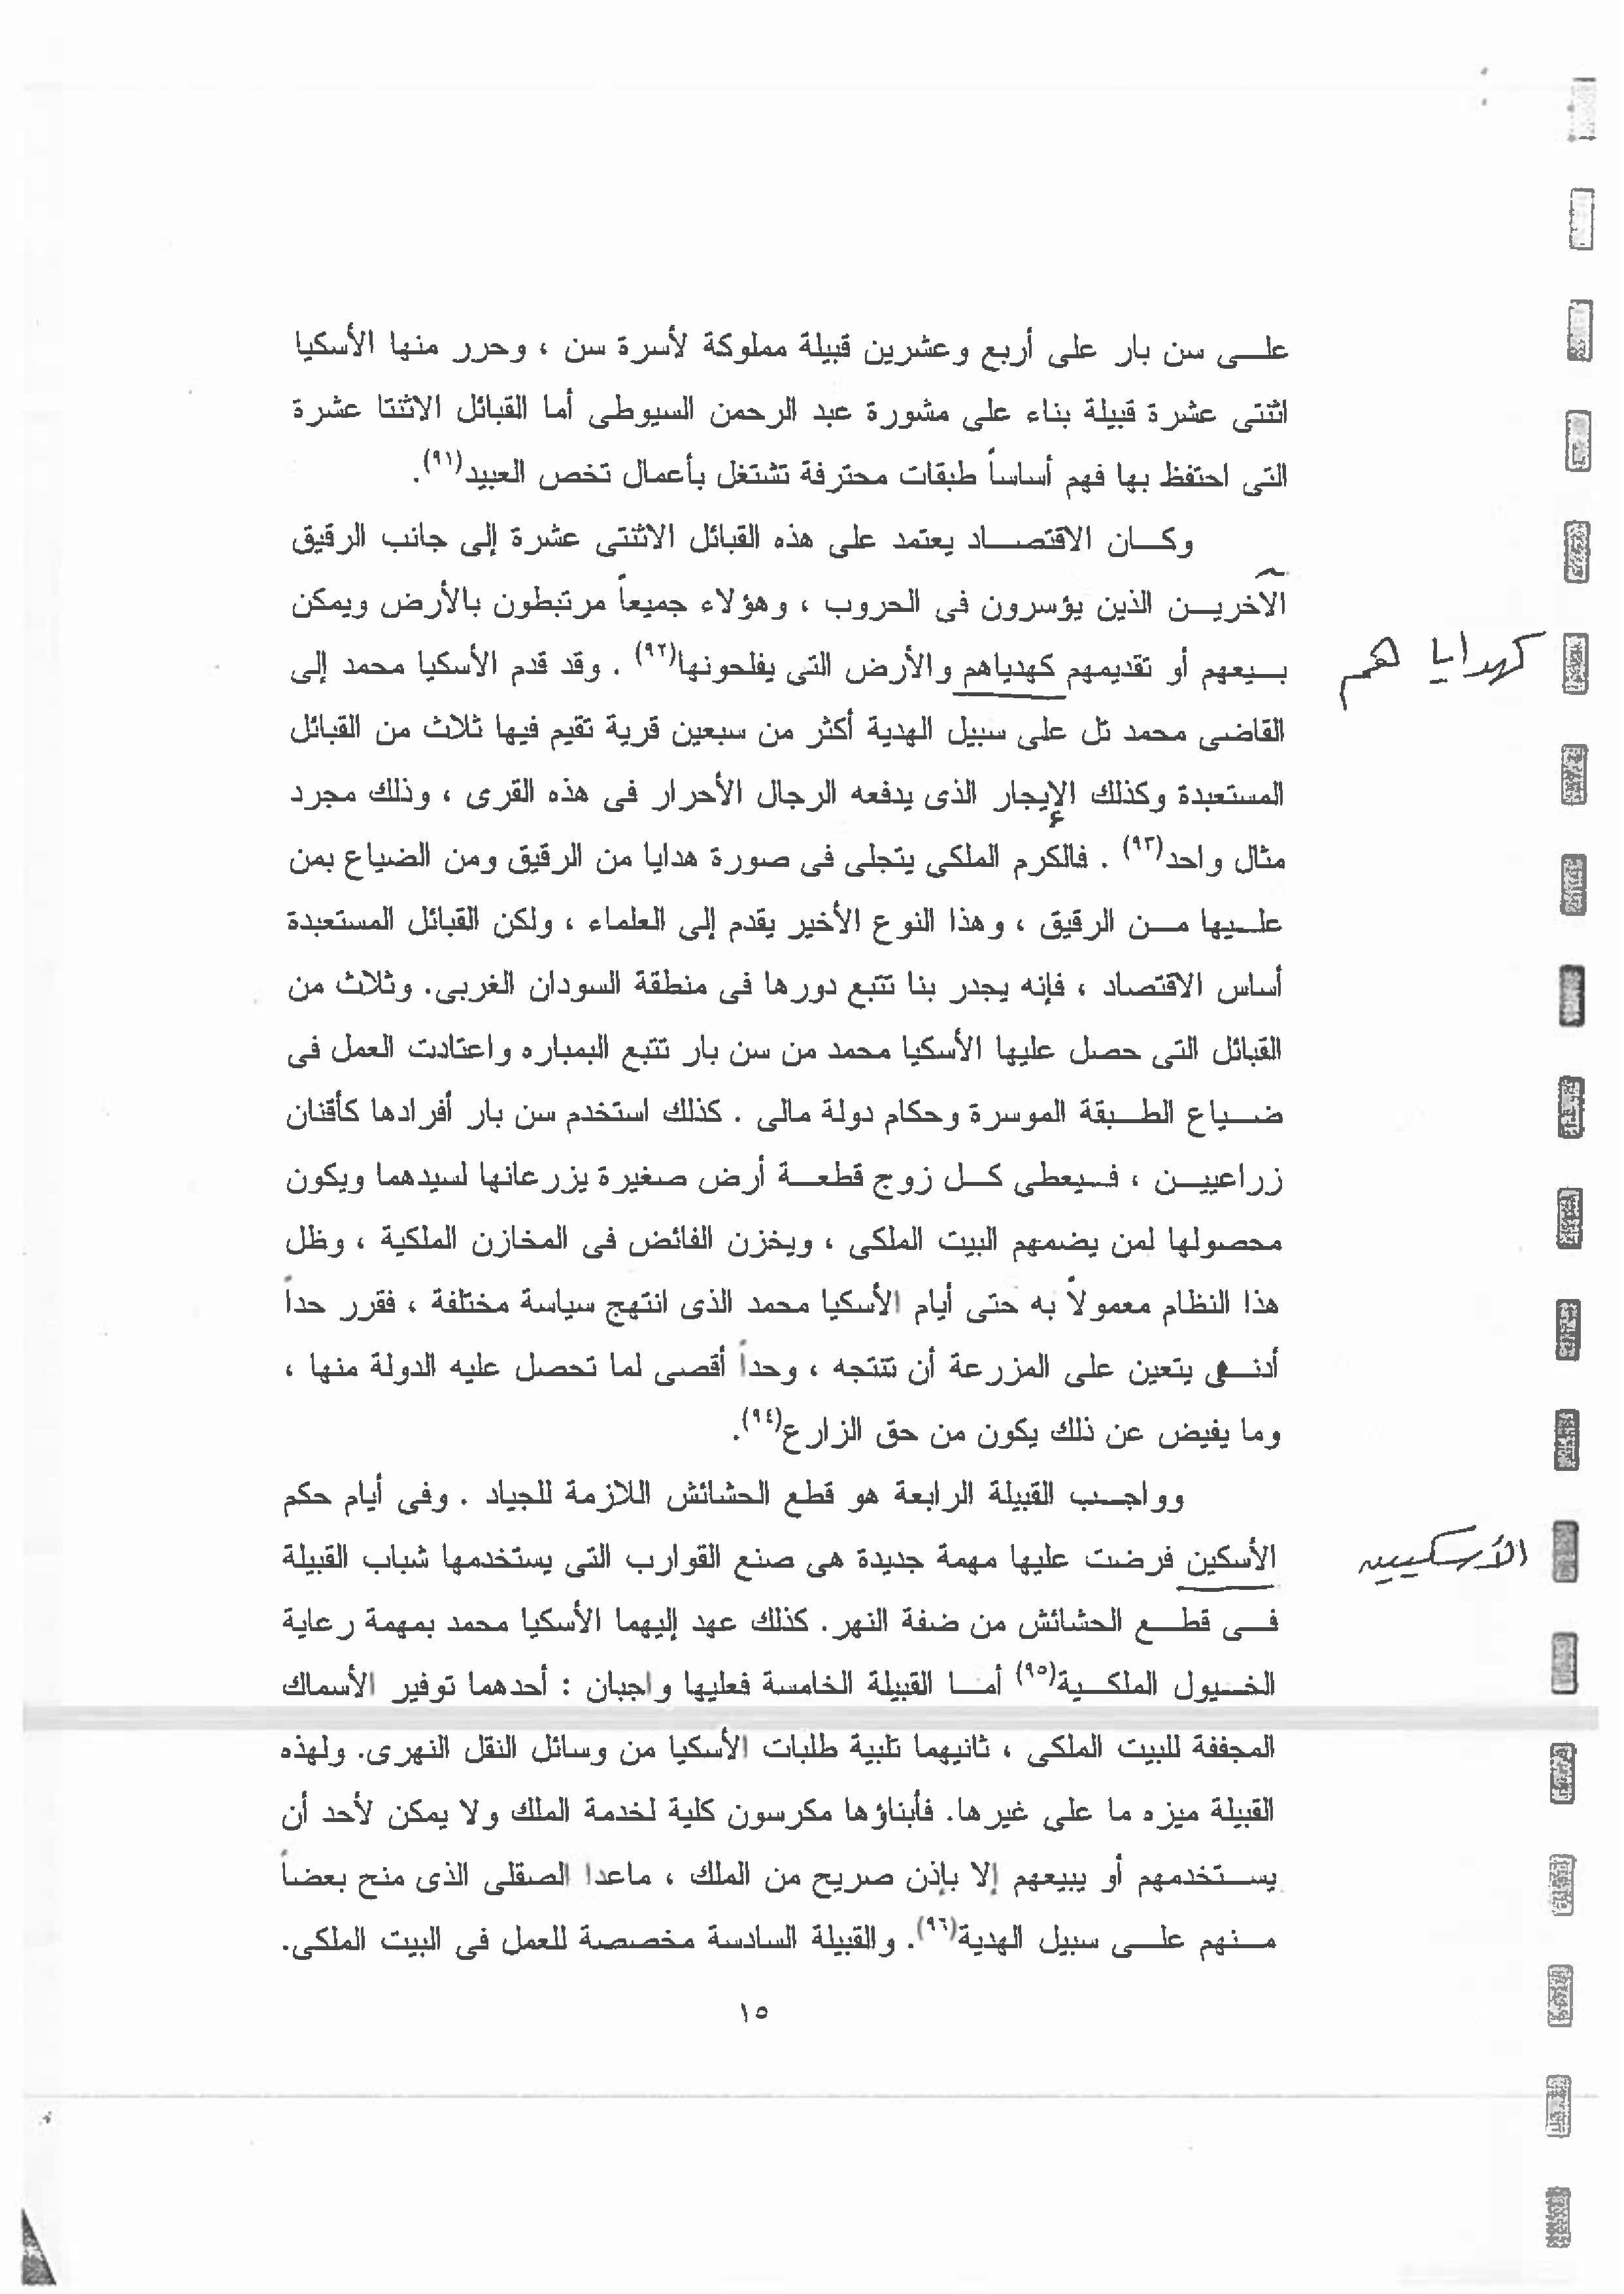 على سن بار على أربع وعشرين قبيلة مملوكة لأسرة سن ، وحرر منها الأسكيا
اثنتى عشرة قبيلة بناء على مشورة عبد الرحمن السيوطى أما القبائل الاثنتا عشرة
التى احتفظ بها فهم أساساً طبقات محترفة تشتغل بأعمال تخص العبيد(٩١).
وكان الاقتصاد يعتمد على هذه القبائل الاثنتى عشرة إلى جانب الرقيق
الآخرين الذين يؤسرون فى الحروب ، وهؤلاء جميعاً مرتبطون بالأرض ويمكن
بيعهم أو تقديمهم كهدياهم والأرض التى يفلحونها(٩٢) . وقد قدم الأسكيا محمد إلى
كهدايا هم
القاضى محمد تل على سبيل الهدية أكثر من سبعين قرية تقيم فيها ثلاث من القبائل
المستعبدة وكذلك الإيجار الذى يدفعه الرجال الأحرار فى هذه القرى ، وذلك مجرد
مثال واحد(٩٣) . فالكرم الملكى يتجلى فى صورة هدايا من الرقيق ومن الضياع بمن
عليها من الرقيق ، وهذا النوع الأخير يقدم إلى العلماء ، ولكن القبائل المستعبدة
أساس الاقتصاد ، فإنه يجدر بنا تتبع دورها فى منطقة السودان الغربى. وثلاث من
القبائل التى حصل عليها الأسكيا محمد من سن بار تتبع البمباره واعتادت العمل فى
ضياع الطبقة الموسرة وحكام دولة مالى . كذلك استخدم سن بار أفرادها كأقنان
زراعيين ، فيعطى كل زوج قطعة أرض صغيرة يزرعانها لسيدهما ويكون
محصولها لمن يضمهم البيت الملكى ، ويخزن الفائض فى المخازن الملكية ، وظل
هذا النظام معمولاً به حتى أيام الأسكيا محمد الذى انتهج سياسة مختلفة ، فقرر حداً
أدنى يتعين على المزرعة أن تنتجه ، وحداً أقصى لما تحصل عليه الدولة منها ،
وما يفيض عن ذلك يكون من حق الزارع(٩٤).
وواجب القبيلة الرابعة هو قطع الحشائش اللازمة للجياد . وفى أيام حكم
الأسكين فرضت عليها مهمة جديدة هى صنع القوارب التى يستخدمها شباب القبيلة
الأسكيين
فى قطع الحشائش من ضفة النهر. كذلك عهد إليهما الأسكيا محمد بمهمة رعاية
الخيول الملكية(٩٥) أما القبيلة الخامسة فعليها واجبان : أحدهما توفير الأسماك
المجففة للبيت الملكى ، ثانيهما تلبية طلبات الأسكيا من وسائل النقل النهرى. ولهذه
القبيلة ميزه ما على غيرها. فأبناؤها مكرسون كلية لخدمة الملك ولا يمكن لأحد أن
يستخدمهم أو يبيعهم إلا بإذن صريح من الملك ، ماعدا الصقلى الذى منح بعضاً
منهم على سبيل الهدية(٩٦). والقبيلة السادسة مخصصة للعمل فى البيت الملكى.
١٥